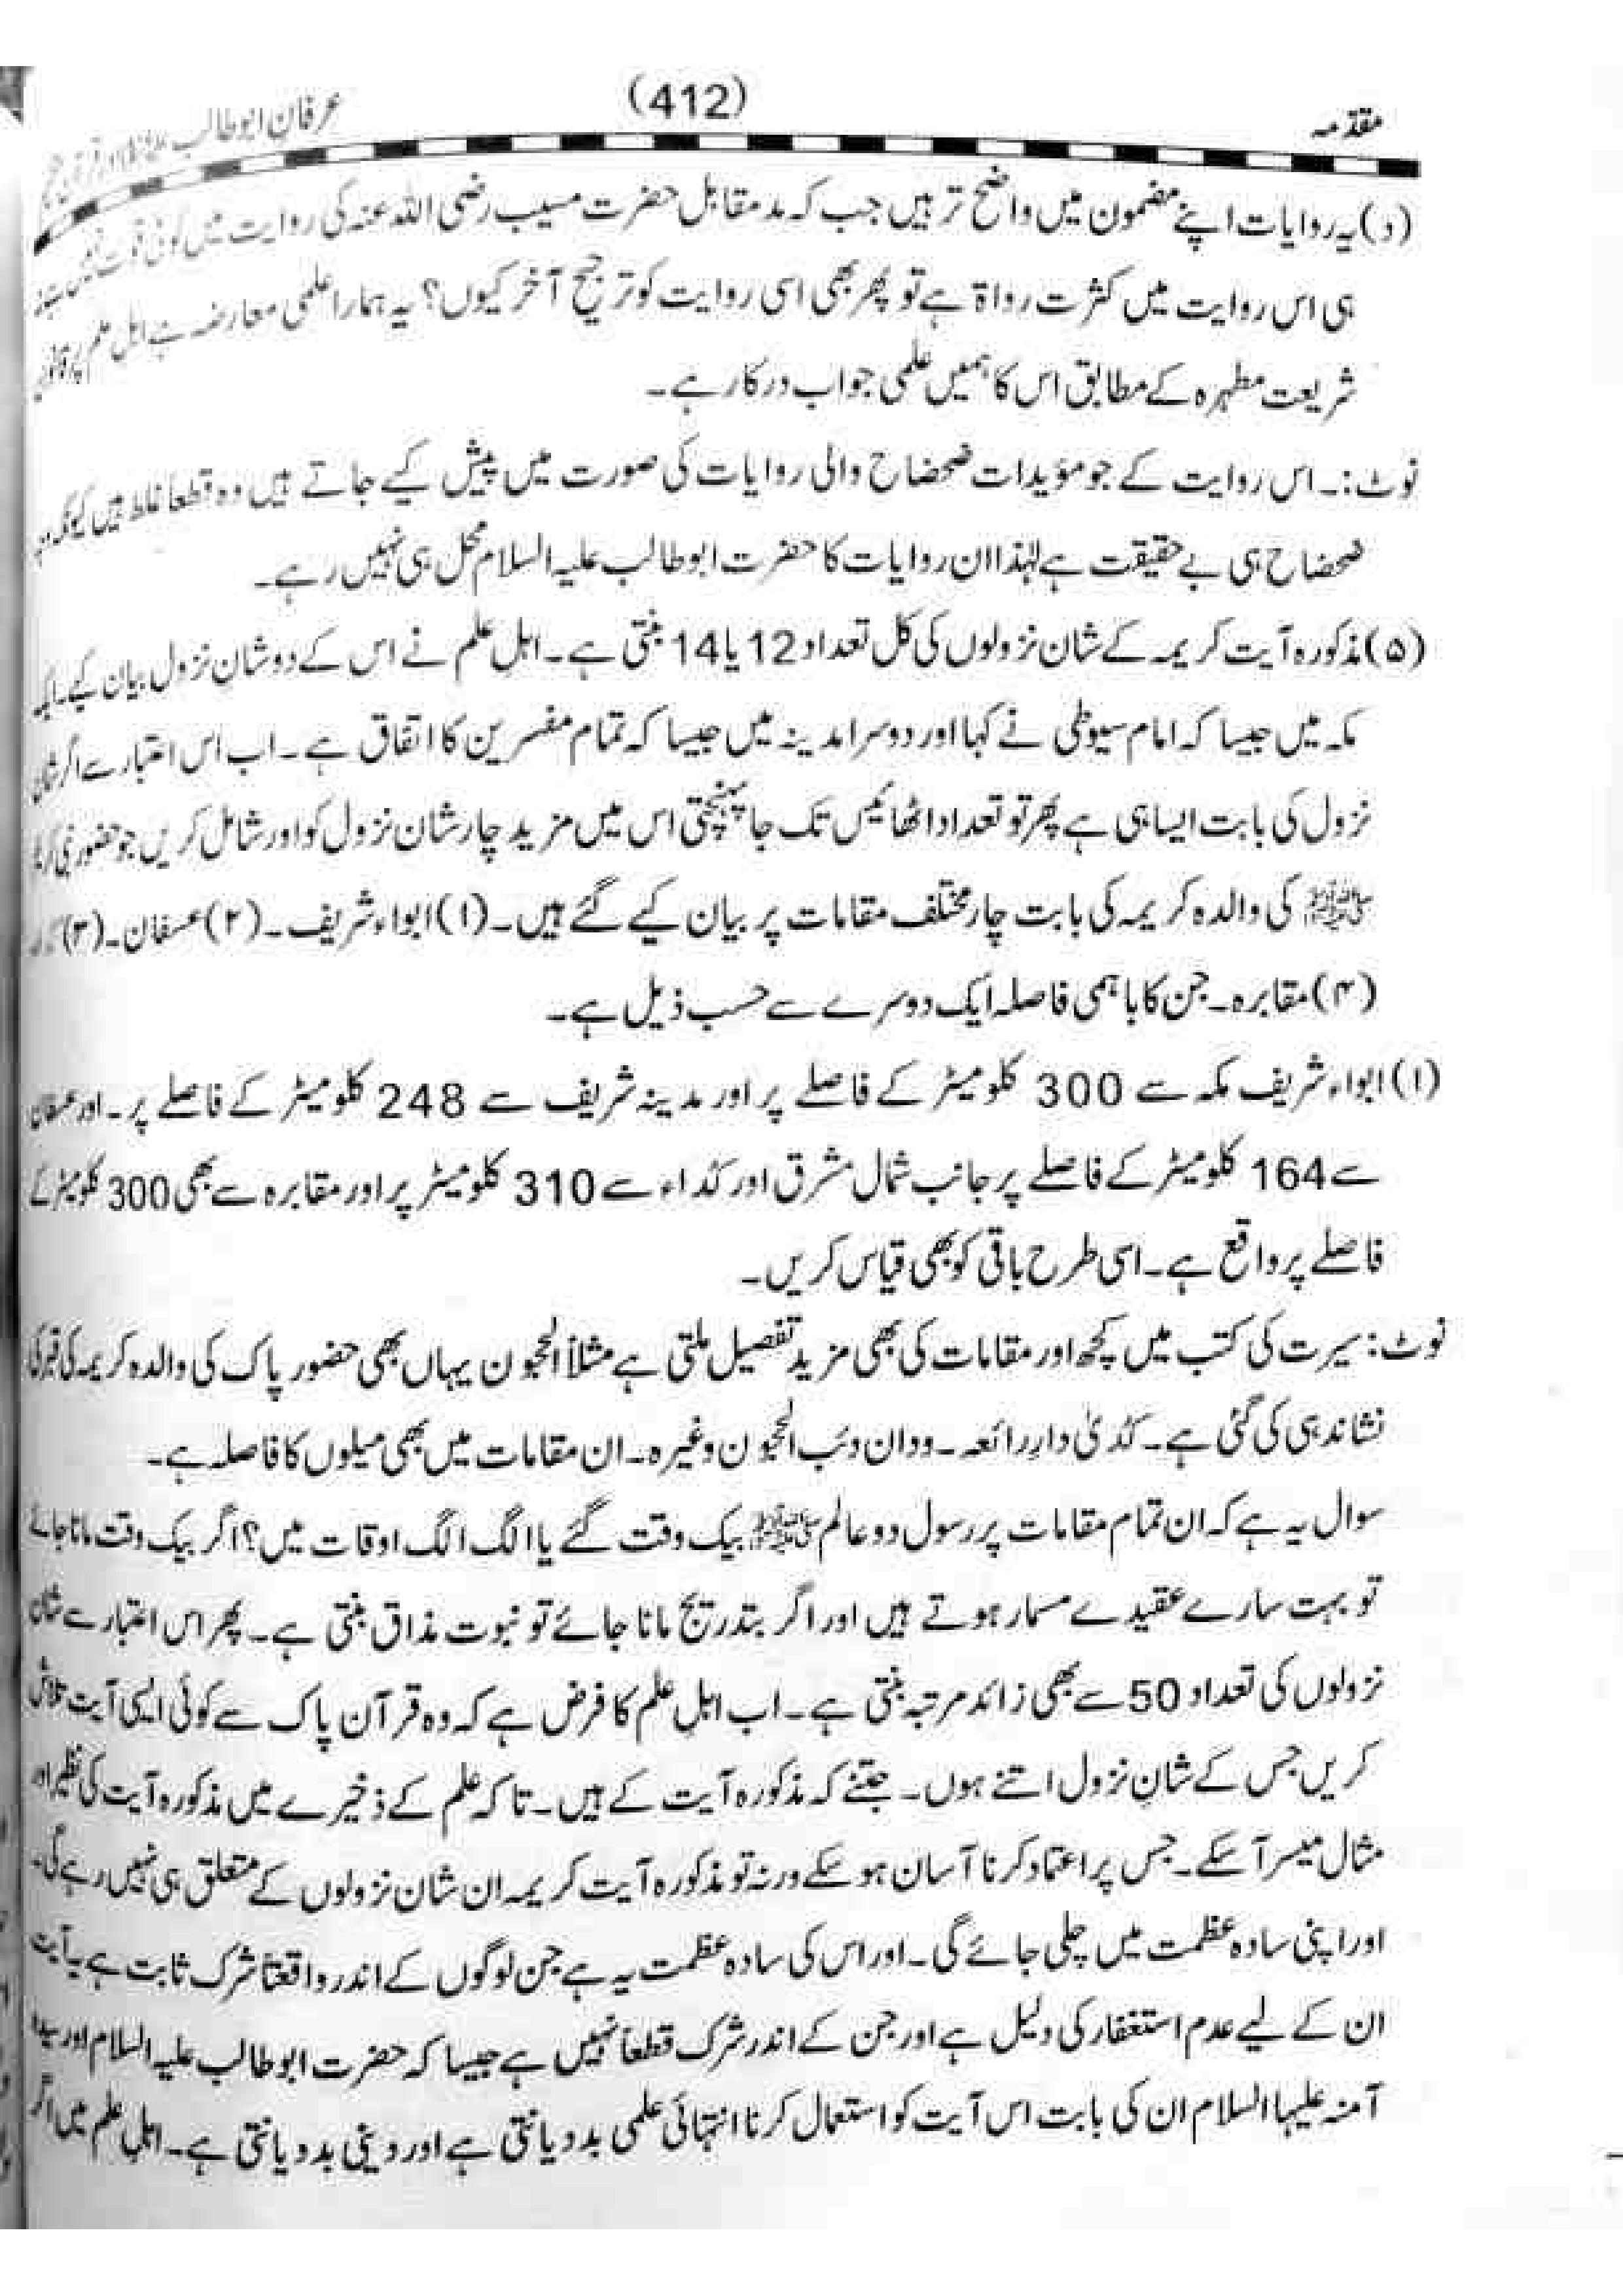 مقدمہ
(412)
عرفان ابوطالب
(د) یہ روایات اپنے مضمون میں واضح تر ہیں جب کہ مدمقابل حضرت مسیب رضی اللہ عنہ کی روایت میں کوئی قوت نہیں ہے نہ
ہی اس روایت میں کثرت رواۃ ہے تو پھر بھی اسی روایت کو ترجیح آخر کیوں؟ یہ ہمارا علمی معارضہ ہے اہل علم پر قانون
شریعت مطہرہ کے مطابق اس کا ہمیں علمی جواب درکار ہے۔
نوٹ:۔ اس روایت کے جو مؤیدات ضحضاح والی روایات کی صورت میں پیش کیے جاتے ہیں وہ قطعاً غلط ہیں کیونکہ
ضحضاح ہی بے حقیقت ہے لہٰذا ان روایات کا حضرت ابوطالب علیہ السلام محل ہی نہیں رہے۔
(۵) مذکورہ آیت کریمہ کے شان نزولوں کی کل تعداد 12 یا 14 بنتی ہے۔ اہل علم نے اس کے دو شان نزول بیان کیے۔ ایک
مکہ میں جیسا کہ امام سیوطی نے کہا اور دوسرا مدینہ میں جیسا کہ تمام مفسرین کا اتفاق ہے۔ اب اس اعتبار سے اگر شان
نزول کی بابت ایسا ہی ہے پھر تو تعداد اٹھائیس تک جا پہنچتی اس میں مزید چار شان نزول کو اور شامل کریں جو حضور نبی کریم
ﷺ کی والدہ کریمہ کی بابت چار مختلف مقامات پر بیان کیے گئے ہیں۔ (۱) ابواء شریف۔ (۲) عسفان۔ (۳)
(۴) مقابرہ۔ جن کا باہمی فاصلہ ایک دوسرے سے حسب ذیل ہے۔
(۱) ابواء شریف مکہ سے 300 کلومیٹر کے فاصلے پر اور مدینہ شریف سے 248 کلومیٹر کے فاصلے پر۔ اور عسفان
سے 164 کلومیٹر کے فاصلے پر جانب شمال مشرق اور کداء سے 310 کلومیٹر پر اور مقابرہ سے بھی 300 کلومیٹر کے
فاصلے پر واقع ہے۔ اسی طرح باقی کو بھی قیاس کریں۔
نوٹ: سیرت کی کتب میں کچھ اور مقامات کی بھی مزید تفصیل ملتی ہے مثلاً الحجون یہاں بھی حضور پاک کی والدہ کریمہ کی قبر کی
نشاندہی کی گئی ہے۔ کدیٰ دار رائعہ۔ ودان وشب الحجون وغیرہ۔ ان مقامات میں بھی میلوں کا فاصلہ ہے۔
سوال یہ ہے کہ ان تمام مقامات پر رسول دو عالم ﷺ بیک وقت گئے یا الگ الگ اوقات میں؟ اگر بیک وقت مانا جائے
تو بہت سارے عقیدے مسمار ہوتے ہیں اور اگر بتدریج مانا جائے تو نبوت مذاق بنتی ہے۔ پھر اس اعتبار سے شان
نزولوں کی تعداد 50 سے بھی زائد مرتبہ بنتی ہے۔ اب اہل علم کا فرض ہے کہ وہ قرآن پاک سے کوئی ایسی آیت تلاش
کریں جس کے شانِ نزول اتنے ہوں۔ جتنے کہ مذکورہ آیت کے ہیں۔ تاکہ علم کے ذخیرے میں مذکورہ آیت کی نظیر اور
مثال میسر آ سکے۔ جس پر اعتماد کرنا آسان ہو سکے ورنہ تو مذکورہ آیت کریمہ ان شان نزولوں کے متعلق ہی نہیں رہے گی۔
اور اپنی سادہ عظمت میں چلی جائے گی۔ اور اس کی سادہ عظمت یہ ہے جن لوگوں کے اندر واقعتاً شرک ثابت ہے یہ آیت
ان کے لیے عدم استغفار کی دلیل ہے اور جن کے اندر شرک قطعاً نہیں ہے جیسا کہ حضرت ابوطالب علیہ السلام اور سیدہ
آمنہ علیہا السلام ان کی بابت اس آیت کو استعمال کرنا انتہائی علمی بددیانتی ہے اور دینی بددیانتی ہے۔ اہلِ علم میں اگر